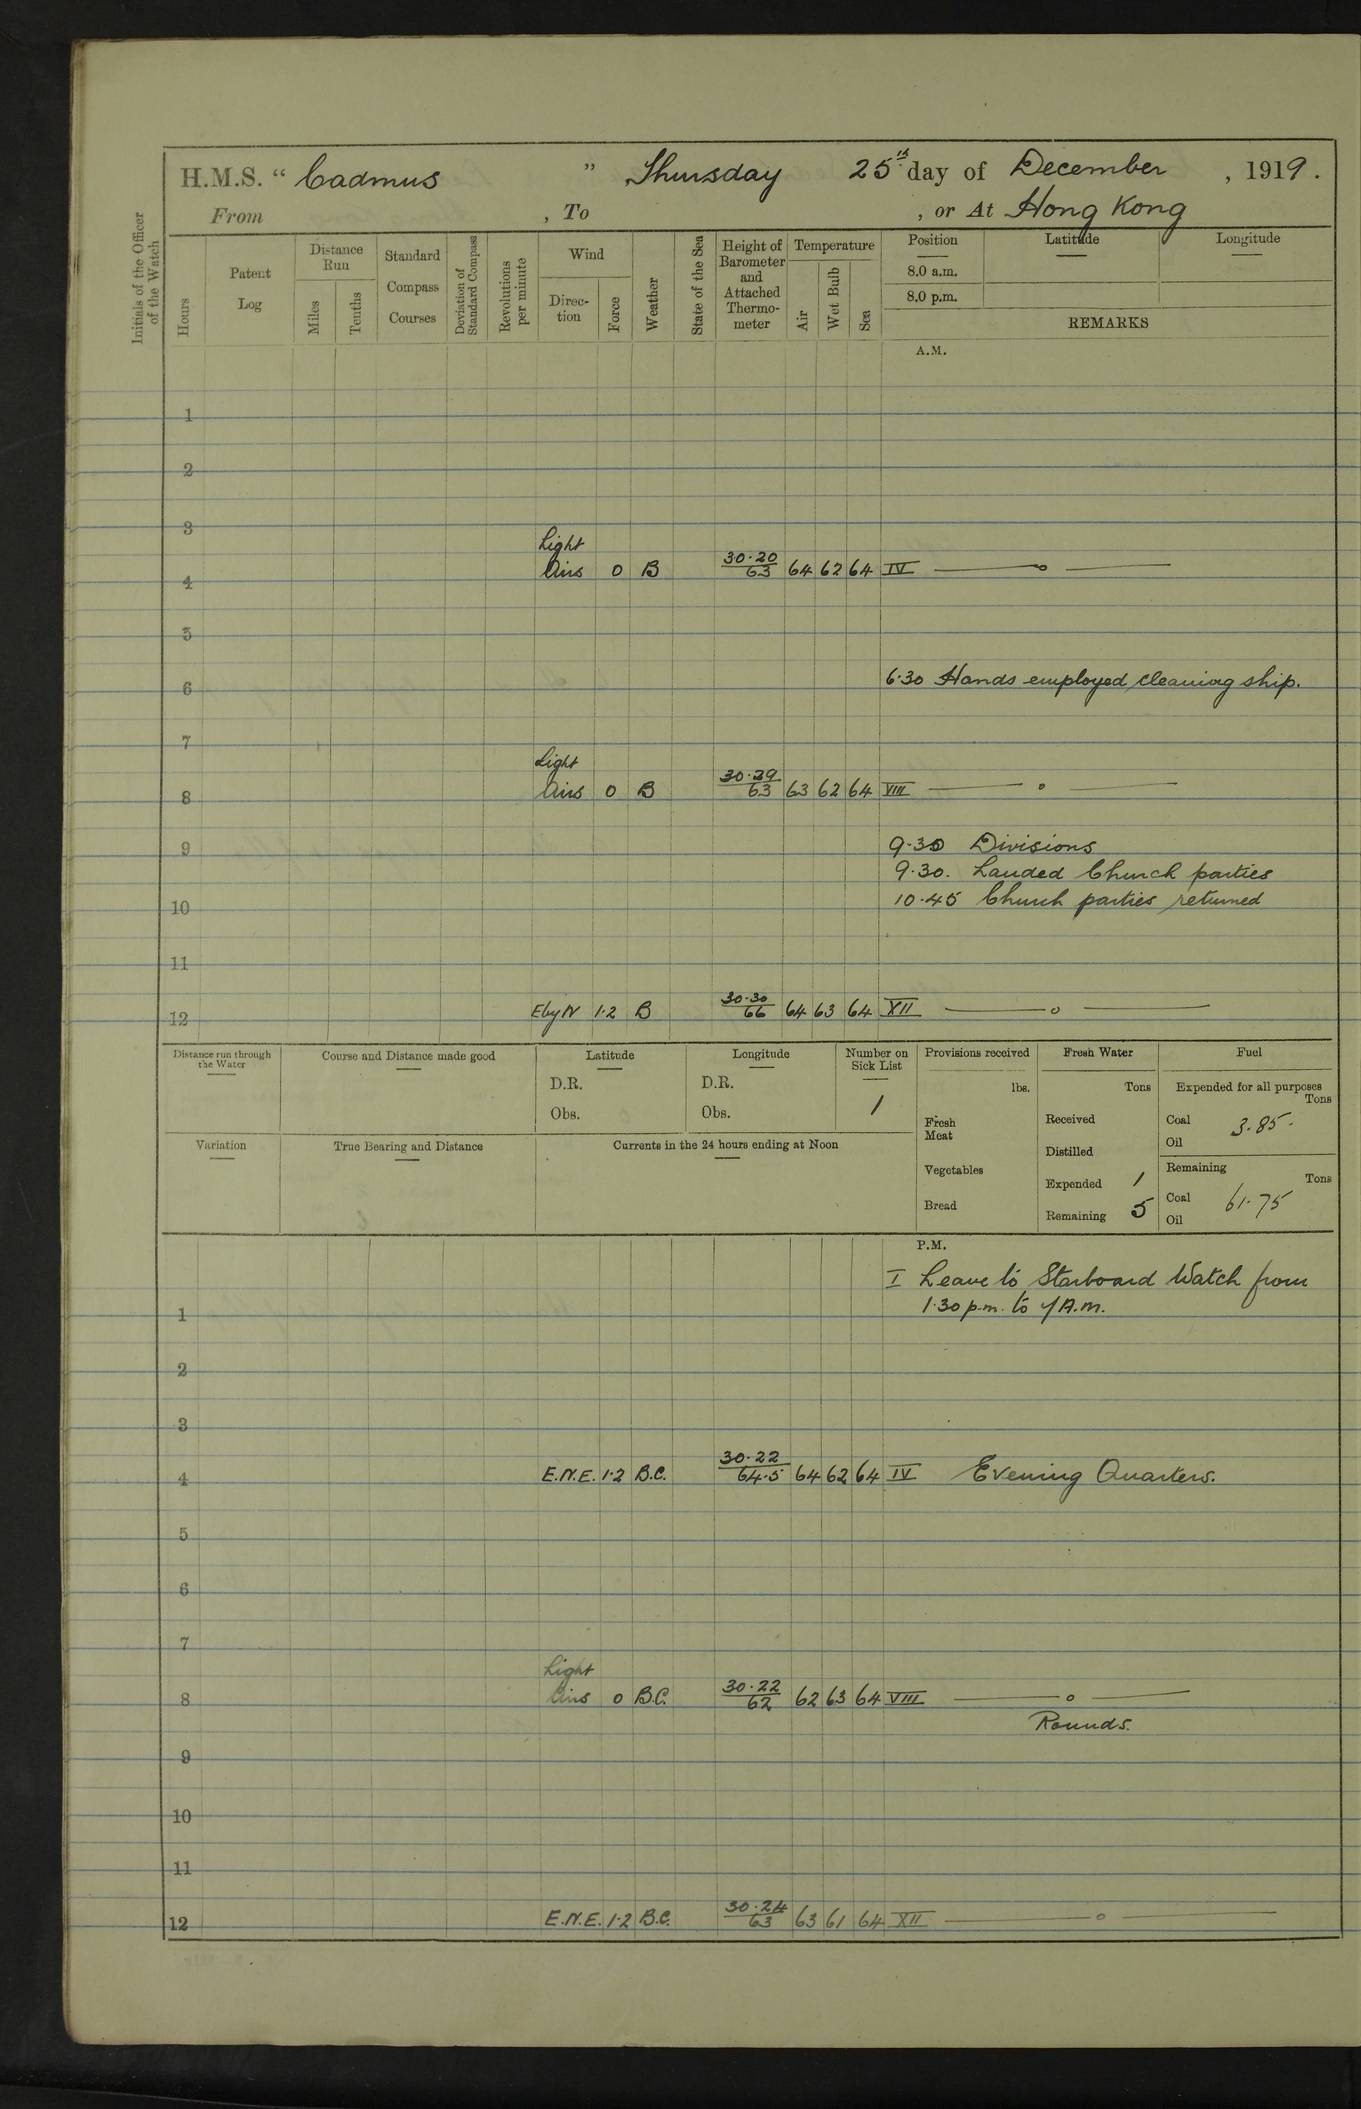 H.M.S. “ Cadmus ” Thursday 25th day of December , 1919.
From , To , or At Hong Kong
Initials of the Officer of the Watch
Hours
Patent Log
Distance Run
Miles
Tenths
Standard Compass Courses
Deviation of Standard Compass
Revolutions per minute
Wind
Direc-tion
Force
Weather
State of the Sea
Height of Barometer and Attached Thermo-meter
Temperature
Air
Wet Bulb
Sea
Position
Latitude
Longitude
8.0 a.m.
8.0 p.m.
REMARKS
A.M.
1
2
3
Light
4 Airs 0 B 30·20/63 64 62 64 IV —o—
5
6 6·30 Hands employed cleaning ship.
7
Light
8 Airs 0 B 30·29/63 63 62 64 VIII —o—
9 9·30 Divisions
9·30. Landed Church parties
10 10·45 Church parties returned
11
12 E by N 1·2 B 30·30/66 64 63 64 XII —o—
Distance run through the Water
Course and Distance made good
Latitude
D.R.
Obs.
Longitude
D.R.
Obs.
Number on Sick List
1
Provisions received
lbs.
Fresh Meat
Vegetables
Bread
Fresh Water
Tons
Received
Distilled
Expended 1
Remaining 5
Fuel
Expended for all purposes
Tons
Coal 3·85·
Oil
Remaining
Tons
Coal 61·75
Oil
Variation
True Bearing and Distance
Currents in the 24 hours ending at Noon
P.M.
I Leave to Starboard Watch from
1 1·30 p.m. to 7 A.m.
2
3
4 E.N.E. 1·2 B.C. 30·22/64·5 64 62 64 IV Evening Quarters.
5
6
7
Light
8 Airs 0 B.C. 30·22/62 62 63 64 VIII —o—
Rounds.
9
10
11
12 E.N.E. 1·2 B.C. 30·24/63 63 61 64 XII —o—